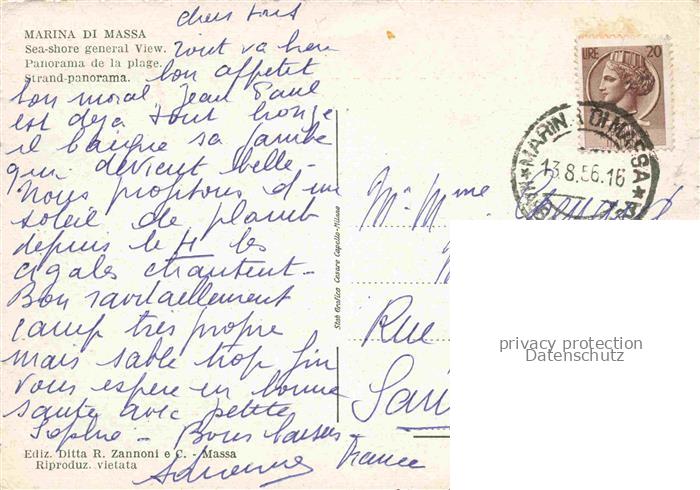 MARINA DI MASSA
Sea-shore general View.
Panorama de la plage.
Strand-panorama.
chers tous
Tout va bien
bon appetit
bon moral Jean Paul
est déjà tout rouge
il baigne sa jambe
qui devient belle -
Nous profitons d'un
soleil de plomb
depuis le 11 les
cigales chantent -
Bon ravitaillement
camp très propre
mais sable trop fin
vous espère en bonne
santé avec petite
Sophie - Bons baisers -
Ediz. Ditta R. Zannoni e C. - Massa
Riproduz. vietata
Stab Grafico Cesare Capello-Milano
LIRE 20
MARINA DI MASSA
13.8.56.16
Mr Mme
Rue
France
privacy protection
Datenschutz